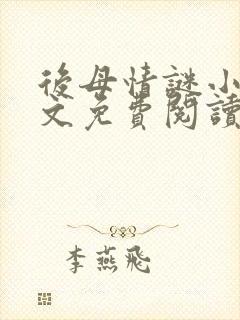 後母情謎小
文免費閱讀
李燕飛